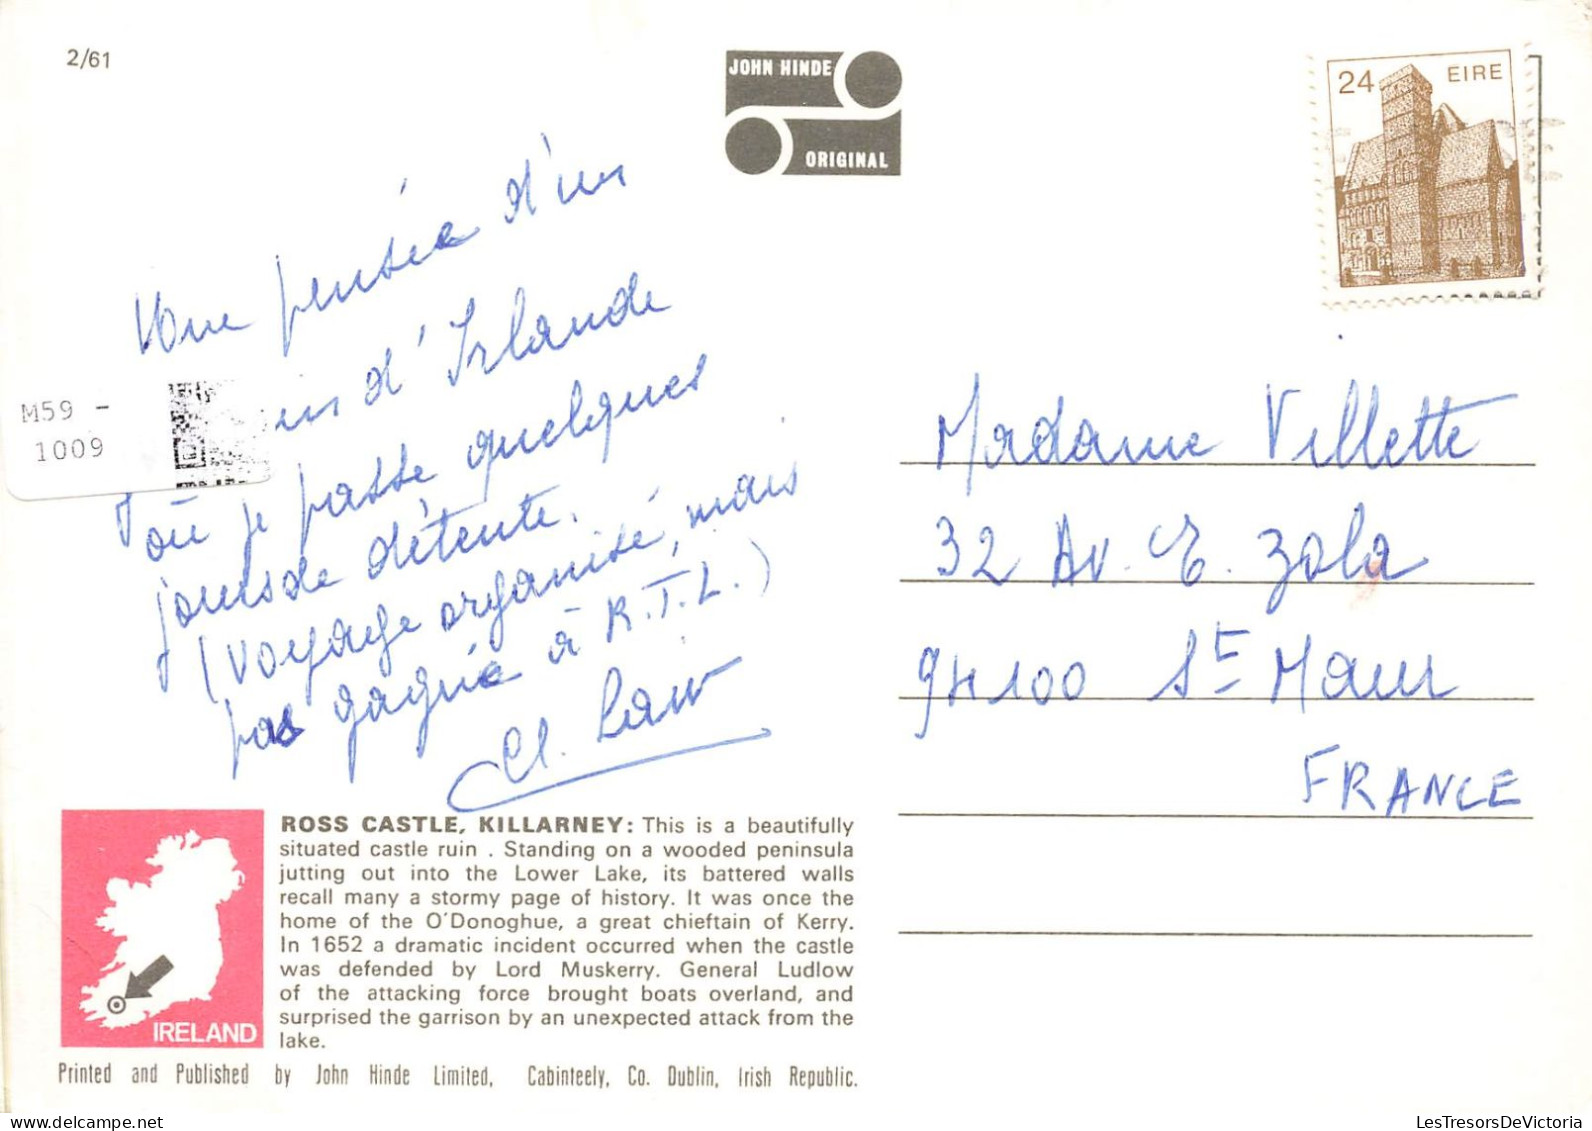 2/61
JOHN HINDE
ORIGINAL
24 EIRE
Une pensée d'un
d'Irlande
où je passe quelques
jours de détente.
(voyage organisé, mais
pas gagné à R.T.L.)
Cl.
M59 -
1009
Madame Villette
32 Av. E. Zola
94100 St Maur
FRANCE
IRELAND
ROSS CASTLE, KILLARNEY: This is a beautifully
situated castle ruin . Standing on a wooded peninsula
jutting out into the Lower Lake, its battered walls
recall many a stormy page of history. It was once the
home of the O'Donoghue, a great chieftain of Kerry.
In 1652 a dramatic incident occurred when the castle
was defended by Lord Muskerry. General Ludlow
of the attacking force brought boats overland, and
surprised the garrison by an unexpected attack from the
lake.
Printed and Published by John Hinde Limited, Cabinteely, Co. Dublin, Irish Republic.
LesTresorsDeVictoria